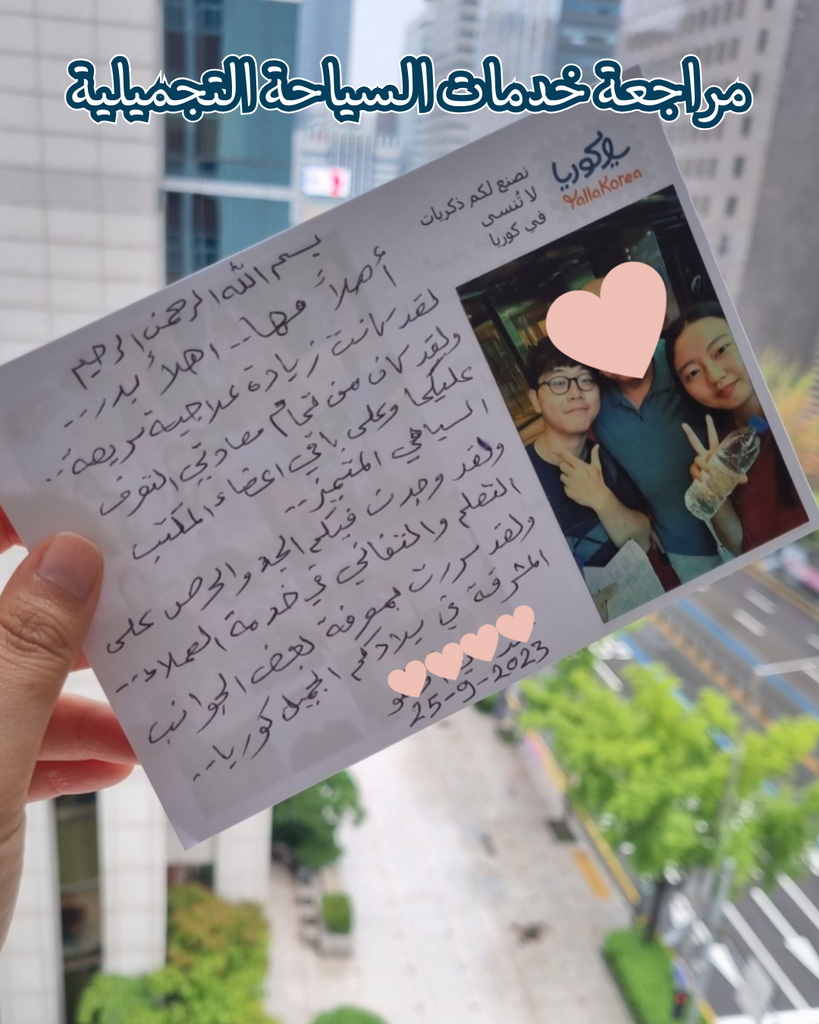 مراجعة خدمات السياحة التجميلية
يلاكوريا
YallaKorea
نصنع لكم ذكريات
لا تُنسى
في كوريا
بسم الله الرحمن الرحيم
أصلاً مها.. اهلاً بدر...
لقد كانت زيارة علاجية مريحة..
ولقد كان من تمام سعادتي التعرف
عليكما وعلى باقي اعضاء المكتب
السياحي المتميز..
ولقد وجدت فيكم الجد والحرص على
التعلم والتفاني في خدمة العملاء..
ولقد سررت بمعرفة بعض الجوانب
المشرقة في بلادكم الجميل كوريا..
25-9-2023